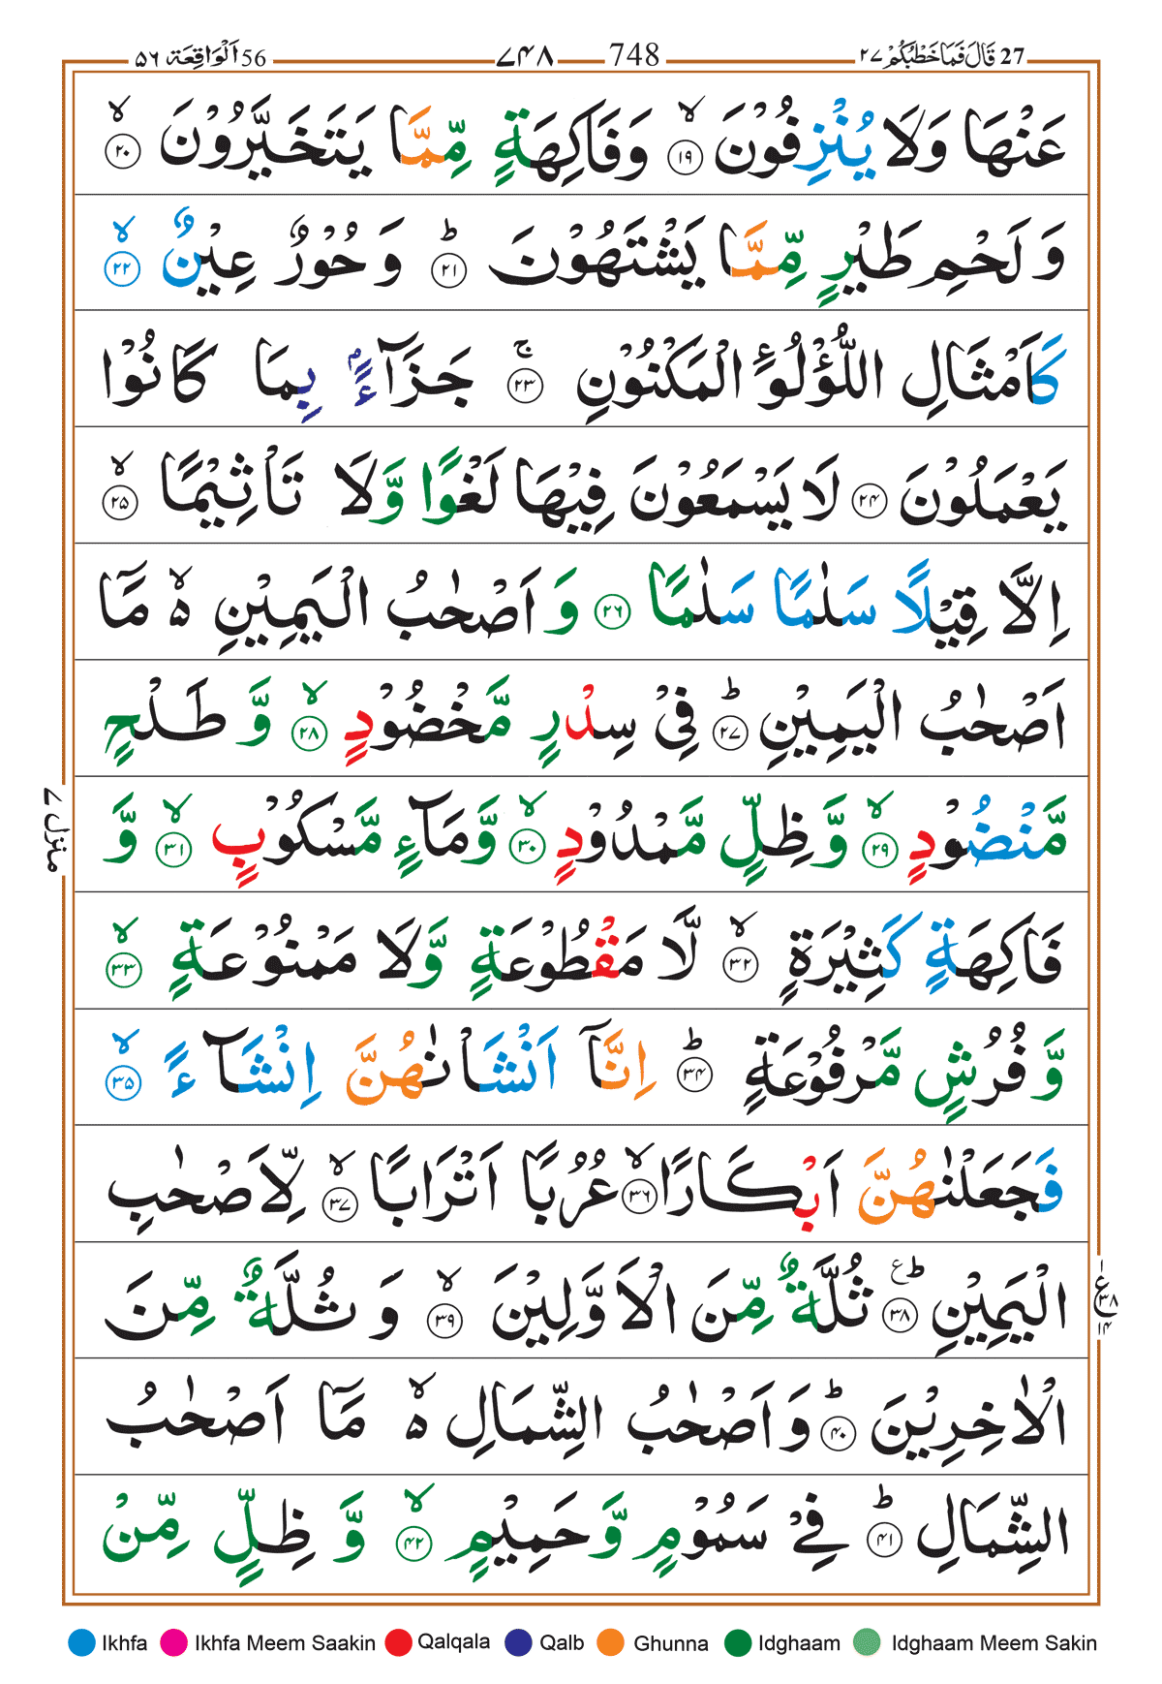 27 قَالَ فَمَا خَطْبُكُمْ ٢٧ 748 ٧٤٨ 56 اَلْوَاقِعَة ٥٦
عَنْهَا وَلَا يُنْزِفُوْنَ ۙ ١٩ وَفَاكِهَةٍ مِّمَّا يَتَخَيَّرُوْنَ ۙ ٢٠
وَلَحْمِ طَيْرٍ مِّمَّا يَشْتَهُوْنَ ؕ ٢١ وَحُوْرٌ عِيْنٌ ۙ ٢٢
كَاَمْثَالِ اللُّؤْلُوٴِ الْمَكْنُوْنِ ۚ ٢٣ جَزَآءًۢ بِمَا كَانُوْا
يَعْمَلُوْنَ ٢٤ لَا يَسْمَعُوْنَ فِيْهَا لَغْوًا وَّلَا تَاْثِيْمًا ۙ ٢٥
اِلَّا قِيْلًا سَلٰمًا سَلٰمًا ٢٦ وَاَصْحٰبُ الْيَمِيْنِ ۙ۬ مَاۤ
اَصْحٰبُ الْيَمِيْنِ ؕ ٢٧ فِيْ سِدْرٍ مَّخْضُوْدٍ ۙ ٢٨ وَّطَلْحٍ
مَّنْضُوْدٍ ۙ ٢٩ وَّظِلٍّ مَّمْدُوْدٍ ۙ ٣٠ وَّمَآءٍ مَّسْكُوْبٍ ۙ ٣١ وَّ
فَاكِهَةٍ كَثِيْرَةٍ ۙ ٣٢ لَّا مَقْطُوْعَةٍ وَّلَا مَمْنُوْعَةٍ ۙ ٣٣
وَّفُرُشٍ مَّرْفُوْعَةٍ ؕ ٣٤ اِنَّاۤ اَنْشَاْنٰهُنَّ اِنْشَآءً ۙ ٣٥
فَجَعَلْنٰهُنَّ اَبْكَارًا ۙ ٣٦ عُرُبًا اَتْرَابًا ۙ ٣٧ لِّاَصْحٰبِ
الْيَمِيْنِ ؕع ٣٨ ثُلَّةٌ مِّنَ الْاَوَّلِيْنَ ۙ ٣٩ وَثُلَّةٌ مِّنَ
الْاٰخِرِيْنَ ؕ ٤٠ وَاَصْحٰبُ الشِّمَالِ ۙ۬ مَاۤ اَصْحٰبُ
الشِّمَالِ ؕ ٤١ فِيْ سَمُوْمٍ وَّحَمِيْمٍ ۙ ٤٢ وَّظِلٍّ مِّنْ
منزل ٧
ع ٣٨ ١٤
Ikhfa Ikhfa Meem Saakin Qalqala Qalb Ghunna Idghaam Idghaam Meem Sakin